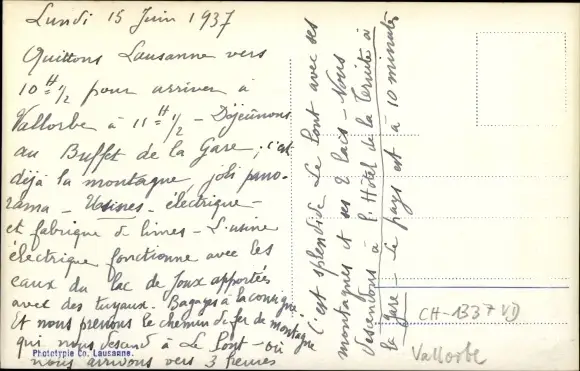 Lundi 15 Juin 1937
Quittons Lausanne vers
10 H 1/2 pour arriver à
Vallorbe à 11 H 1/2 - Déjeûnons
au Buffet de la Gare ; c'est
déjà la montagne, joli pano-
rama - Usines - électrique -
et fabrique de limes - L'usine
électrique fonctionne avec les
eaux du lac de Joux apportées
avec des tuyaux. Bagages à la consigne
Et nous prenons le chemin de fer de montagne
qui nous descend à Le Pont - où
nous arrivons vers 3 heures
C'est splendide Le Pont avec ses
montagnes et ses 2 lacs - Nous
descendons à l'Hôtel de la Truite à
la gare - Le pays est à 10 minutes
Phototypie Co, Lausanne.
CH-1337 VD
Vallorbe